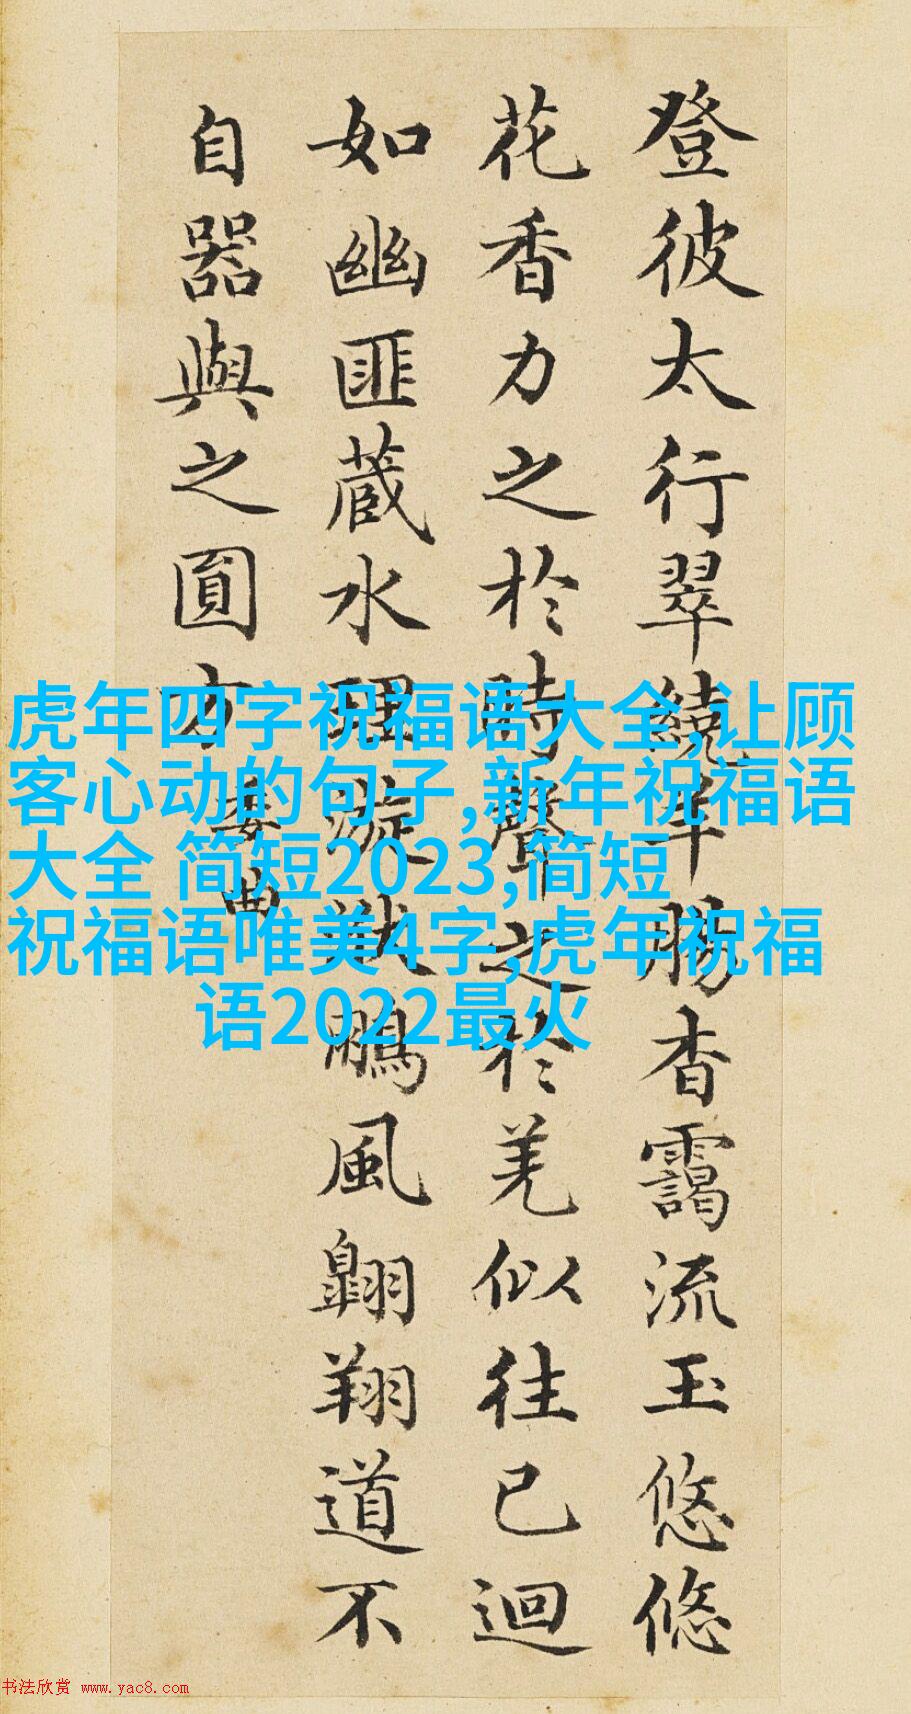 登彼太行翠繞羊腸杳靄流玉悠悠
花香力之於時聲之於羌似往已迴
如幽匪蔵水理漩洑鵬風翺翔道不
自器與之圓方
委曲
虎年四字祝福语大全,让顾
客心动的句子,新年祝福语
大全 简短2023,简短
祝福语唯美4字,虎年祝福
语2022最火
书法欣赏 www.yac8.com